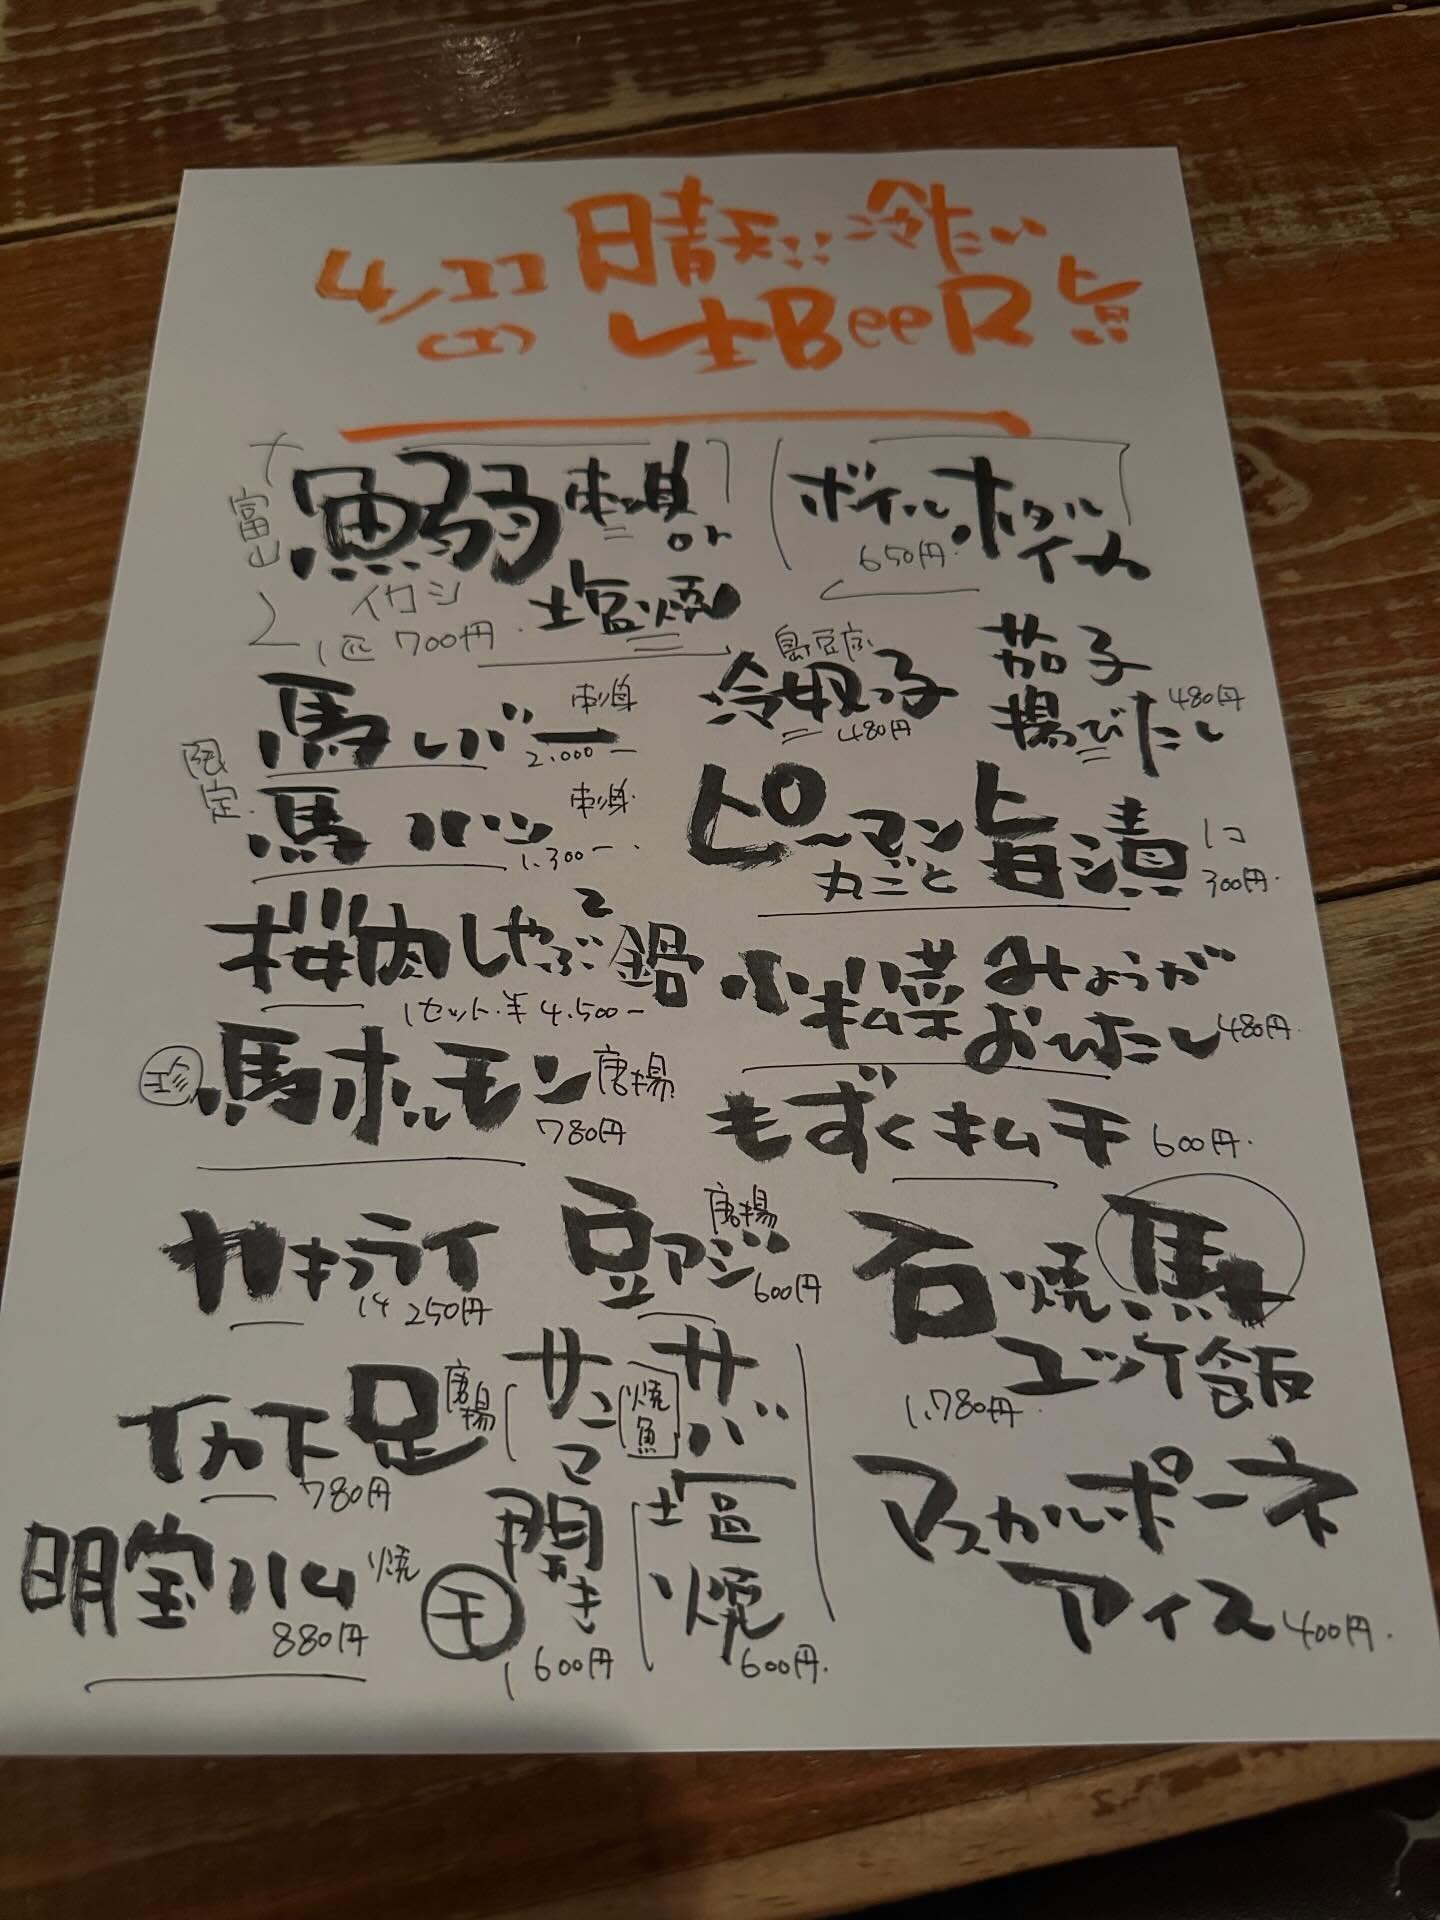 4/22 晴天に冷たい
(土) 生BeeR 旨
富山 鰯 刺身 or
イワシ 塩焼
1匹 700円
ボイルホタルイカ
650円
限定
馬レバー 刺身
2,000ー
馬ハツ 刺身
1,300ー
桜肉しゃぶ2鍋
1セット¥4,500ー
珍 馬ホルモン 唐揚
780円
島豆腐
冷奴っ子
480円
茄子
揚びたし 480円
ピーマン
丸ごと 旨漬 1コ
300円
小松菜 みょうが
おひたし 480円
もずくキムチ 600円
カキフライ
1ケ 250円
豆アジ 唐揚
600円
イカ下足 唐揚
780円
明宝ハム 焼
880円
焼魚
サンマ開き 干
600円
サバ塩焼
600円
石焼 馬
ユッケ飯
1,780円
マスカルポーネ
アイス 400円